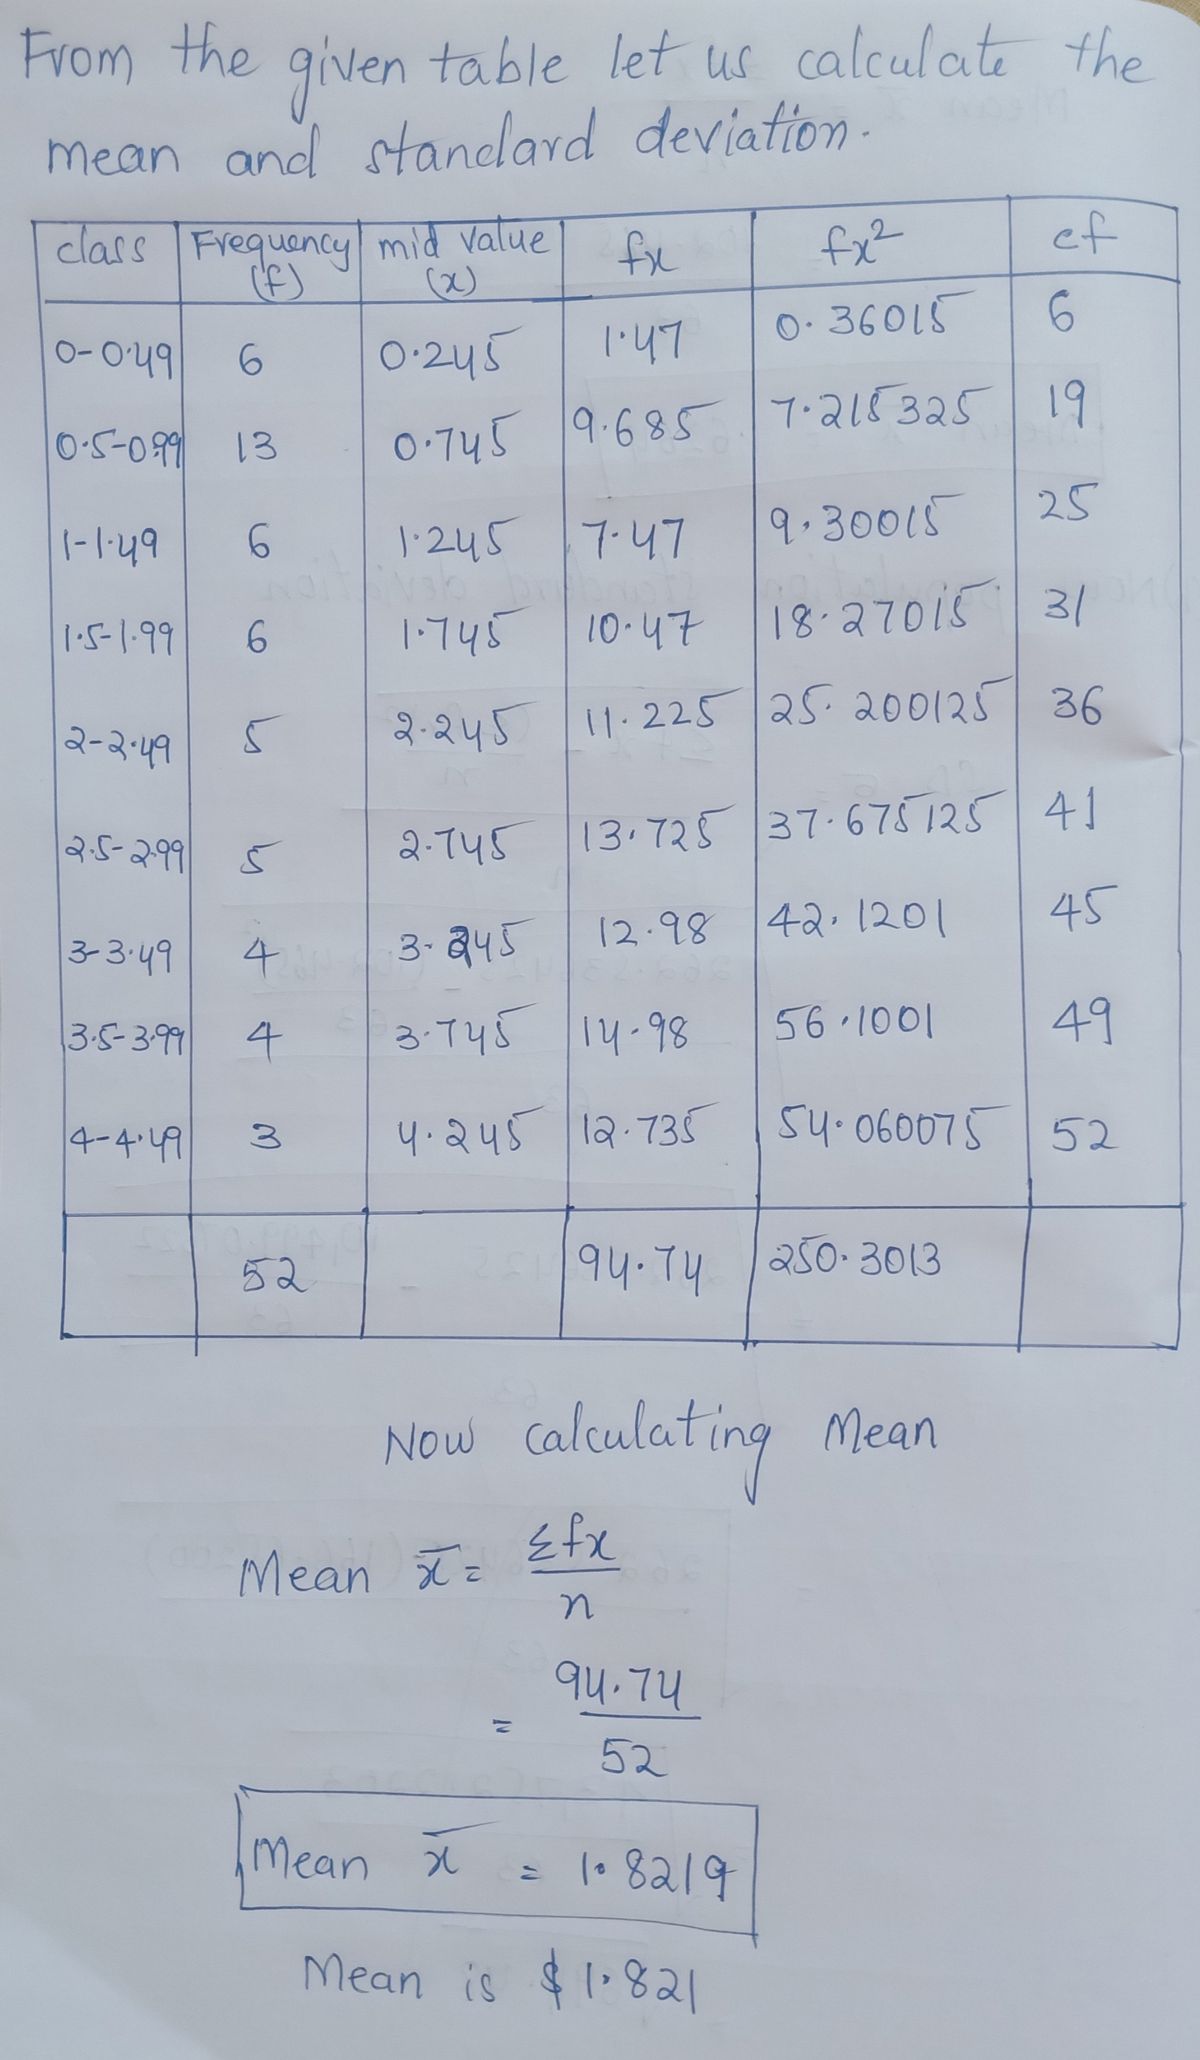 From the given table let us calculate the
mean and standard deviation.
class Frequency (f) mid value (x) fx fx² cf
0-0.49 6 0.245 1.47 0.36015 6
0.5-0.99 13 0.745 9.685 7.215325 19
1-1.49 6 1.245 7.47 9.30015 25
1.5-1.99 6 1.745 10.47 18.27015 31
2-2.49 5 2.245 11.225 25.200125 36
2.5-2.99 5 2.745 13.725 37.675125 41
3-3.49 4 3.245 12.98 42.1201 45
3.5-3.99 4 3.745 14.98 56.1001 49
4-4.49 3 4.245 12.735 54.060075 52
52 94.74 250.3013
Now calculating Mean
Mean x̄ = Σfx / n
= 94.74 / 52
Mean x̄ = 1.8219
Mean is $1.821